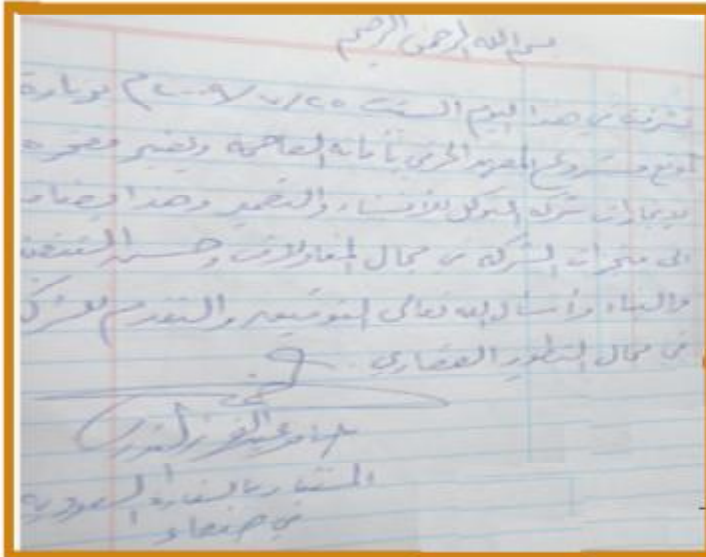 بسم الله الرحمن الرحيم
تشرفت في هذا اليوم السبت ٢٥/٧/٢٠٠٩م بزيارة
لموقع مشروع المعهد الحرفي بأمانة العاصمة ويعتبر مفخرة
لإنجازات شركة التوكل للإنشاء والتعمير وهذا يضاف
الى منجزات الشركة في مجال المقاولات وحسن التنفيذ
والبناء وأسأل الله تعالى التوفيق والتقدم للشركة
في مجال التطوير العقاري
عبد العزيز
المستشار بالسفارة السعودية
في صنعاء